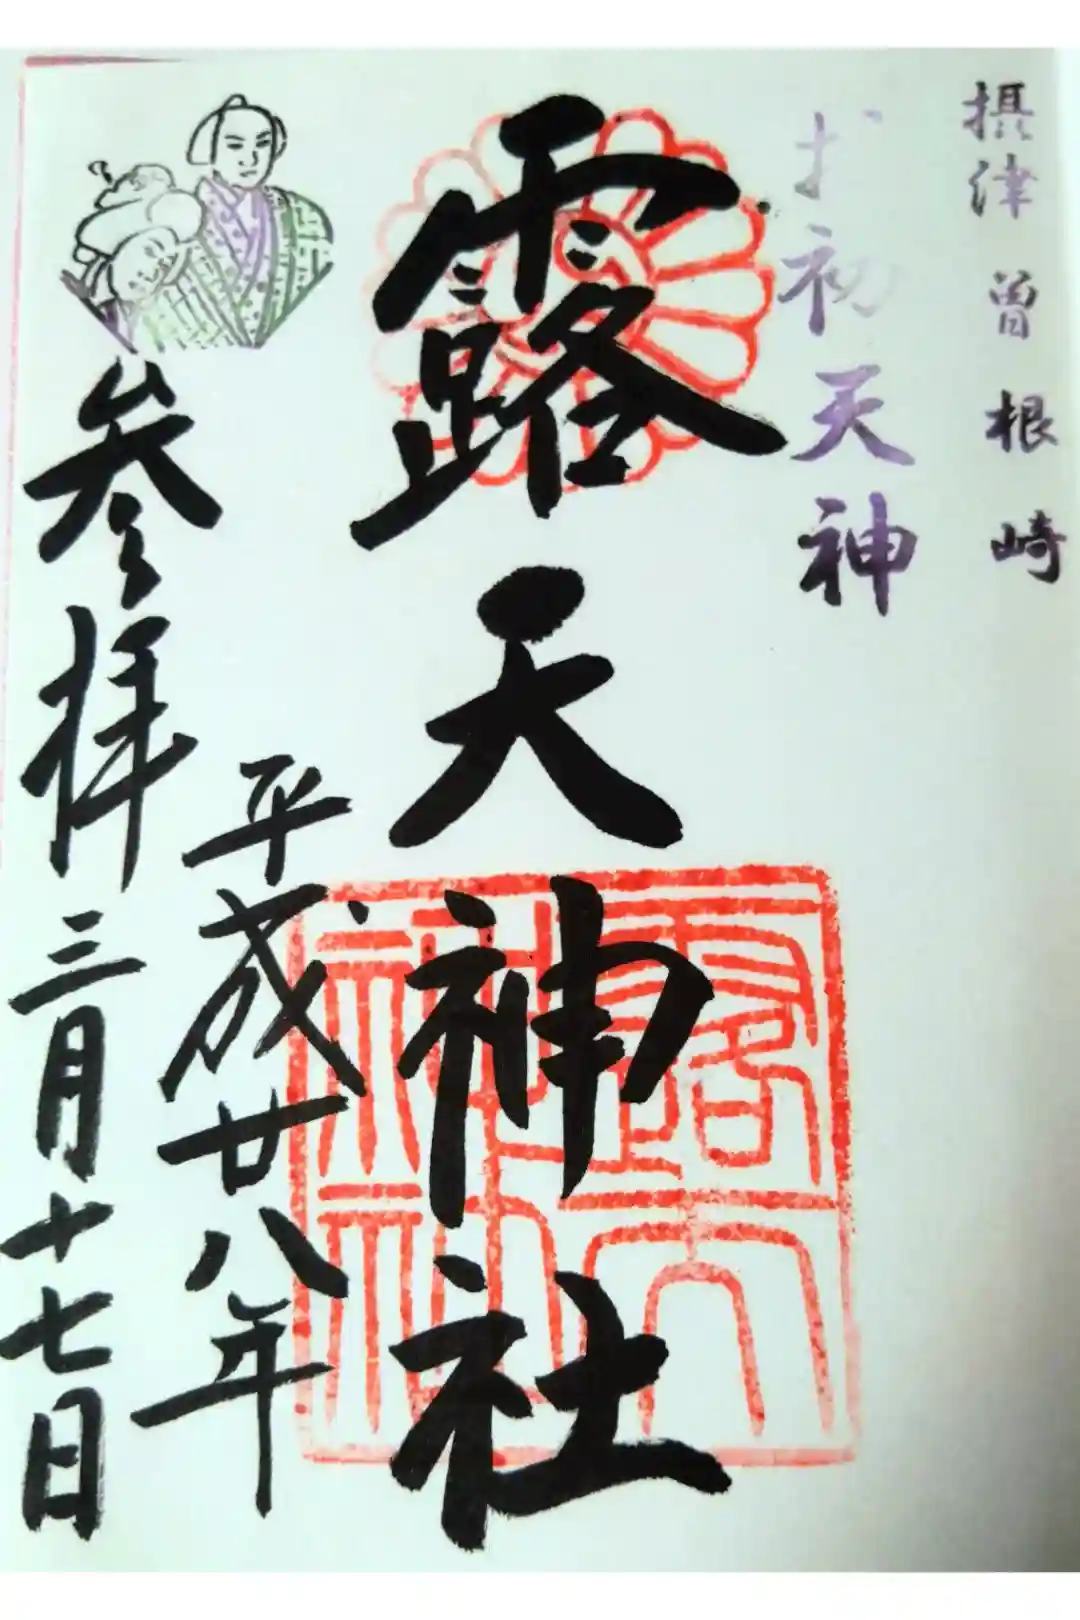 摂津 曽根崎
お初天神
露天神社
平成廿八年
参拝 三月十七日
露天神社